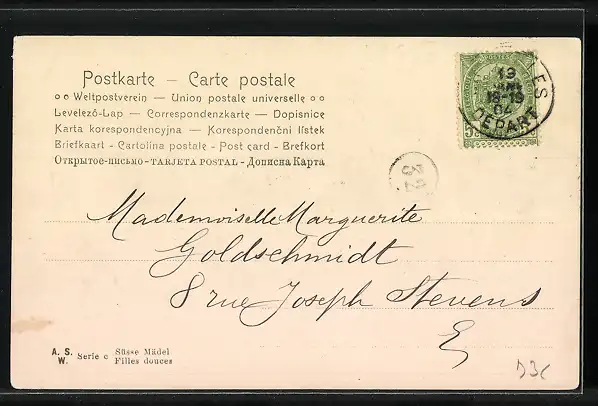 Postkarte — Carte postale
Weltpostverein — Union postale universelle
Levelező-Lap — Correspondenzkarte — Dopisnice
Karta korespondencyjna — Korespondenční lístek
Briefkaart - Cartolina postale - Post card - Brefkort
Открытое-письмо - TARJETA POSTAL - Дописна Карта
19
18-19
DEPART
32
Mademoiselle Marguerite
Goldschmidt
8 rue Joseph Stevens
A. S. W. Serie c Süsse Mädel
Filles douces